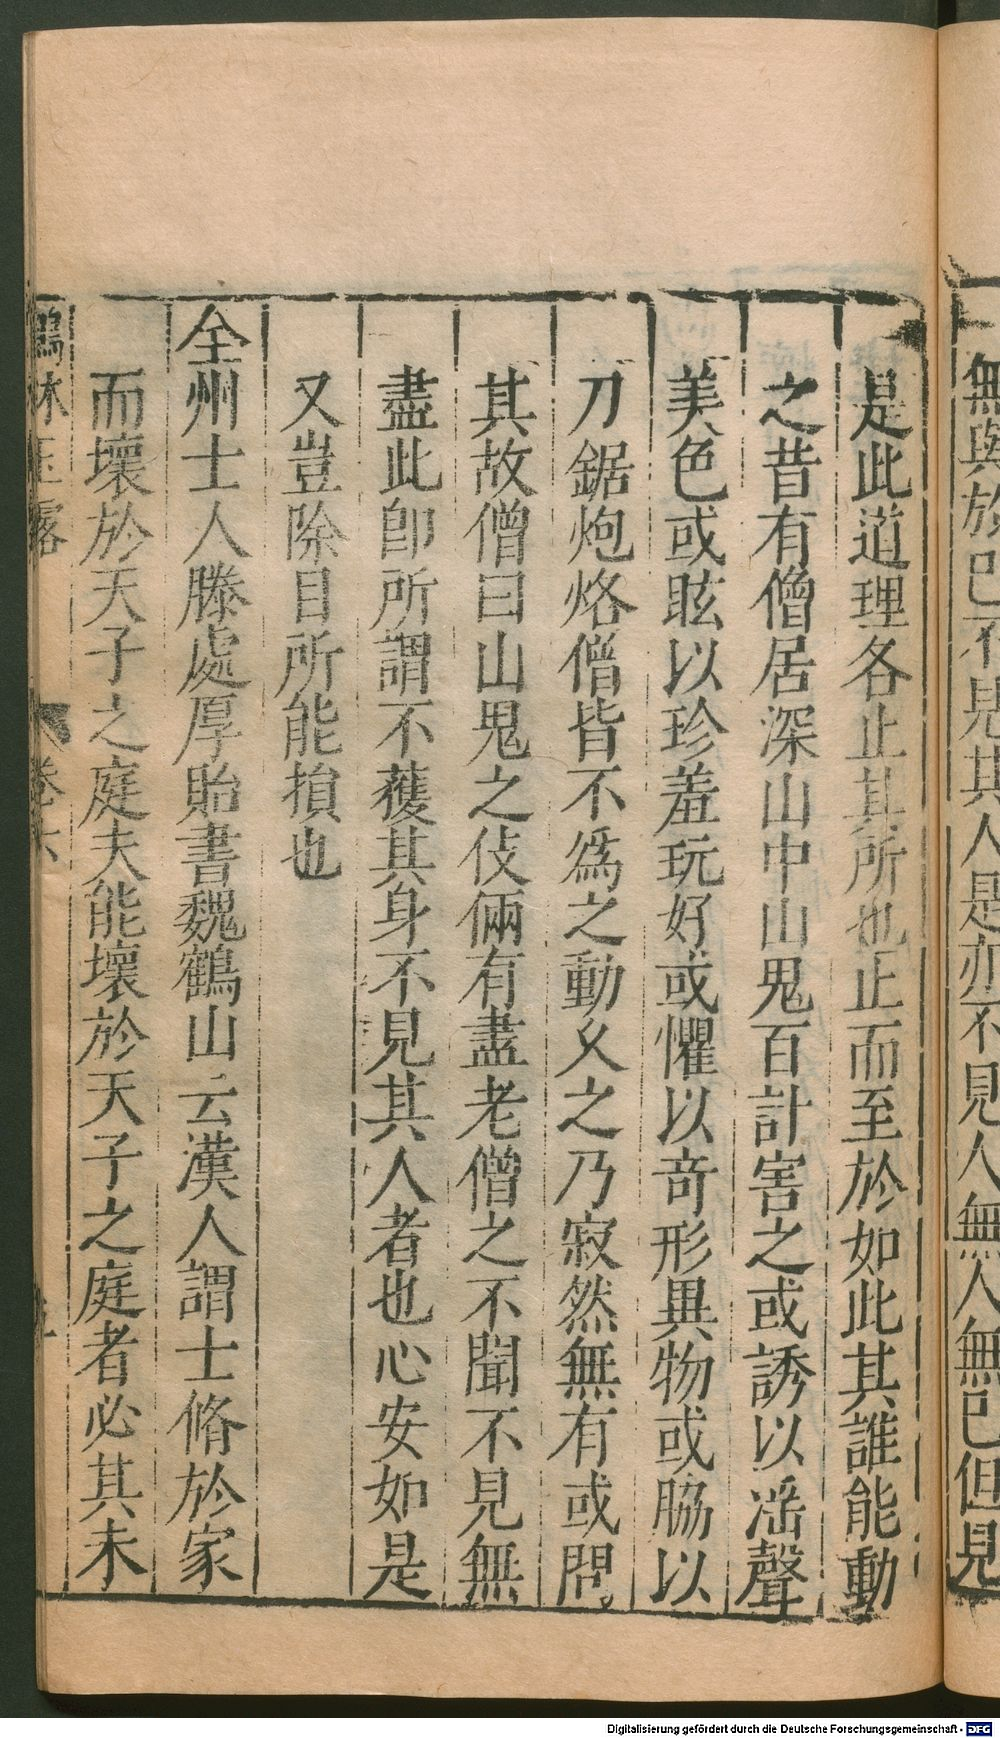 無與於已不見其人是亦不見人無人無已但見
是此道理各止其所也止而至於如此其誰能動
之昔有僧居深山中山鬼百計害之或誘以淫聲
美色或眩以珍羞玩好或懼以竒形異物或脇以
刀鋸炮烙僧皆不為之動乆之乃寂然無有或問
其故僧曰山鬼之伎倆有盡老僧之不聞不見無
盡此卽所謂不蔓其身不見其人者也心安如是
又豈除目所能損也
全州士人滕處厚貽書魏鶴山云漢人謂士脩於家
而壞於天子之庭夫能壞於天子之庭者必其未
鶴林玉露 卷六
Digitalisierung gefördert durch die Deutsche Forschungsgemeinschaft - DFG